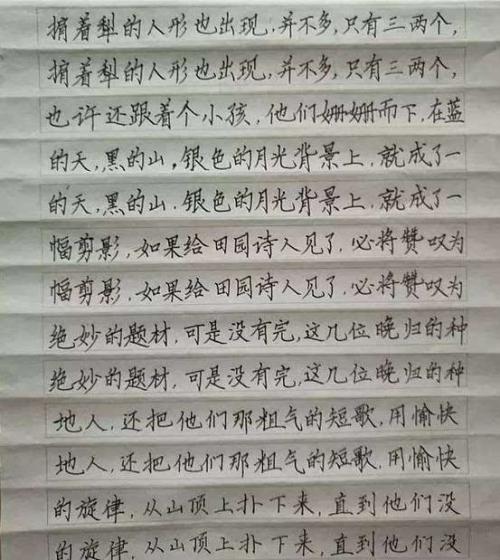 掮着犁的人形也出现,并不多,只有三两个,
掮着犁的人形也出现,并不多,只有三两个,
也许还跟着个小孩,他们姗姗而下,在蓝
的天,黑的山,银色的月光背景上,就成了一
的天,黑的山.银色的月光背景上,就成了一
幅剪影,如果给田园诗人见了,必将赞叹为
幅剪影,如果给田园诗人见了,必将赞叹为
绝妙的题材,可是没有完,这几位晚归的种
绝妙的题材,可是没有完,这几位晚归的种
地人,还把他们那粗气的短歌,用愉快
地人,还把他们那粗气的短歌,用愉快
的旋律,从山顶上扑下来,直到他们没
的旋律,从山顶上扑下来,直到他们没